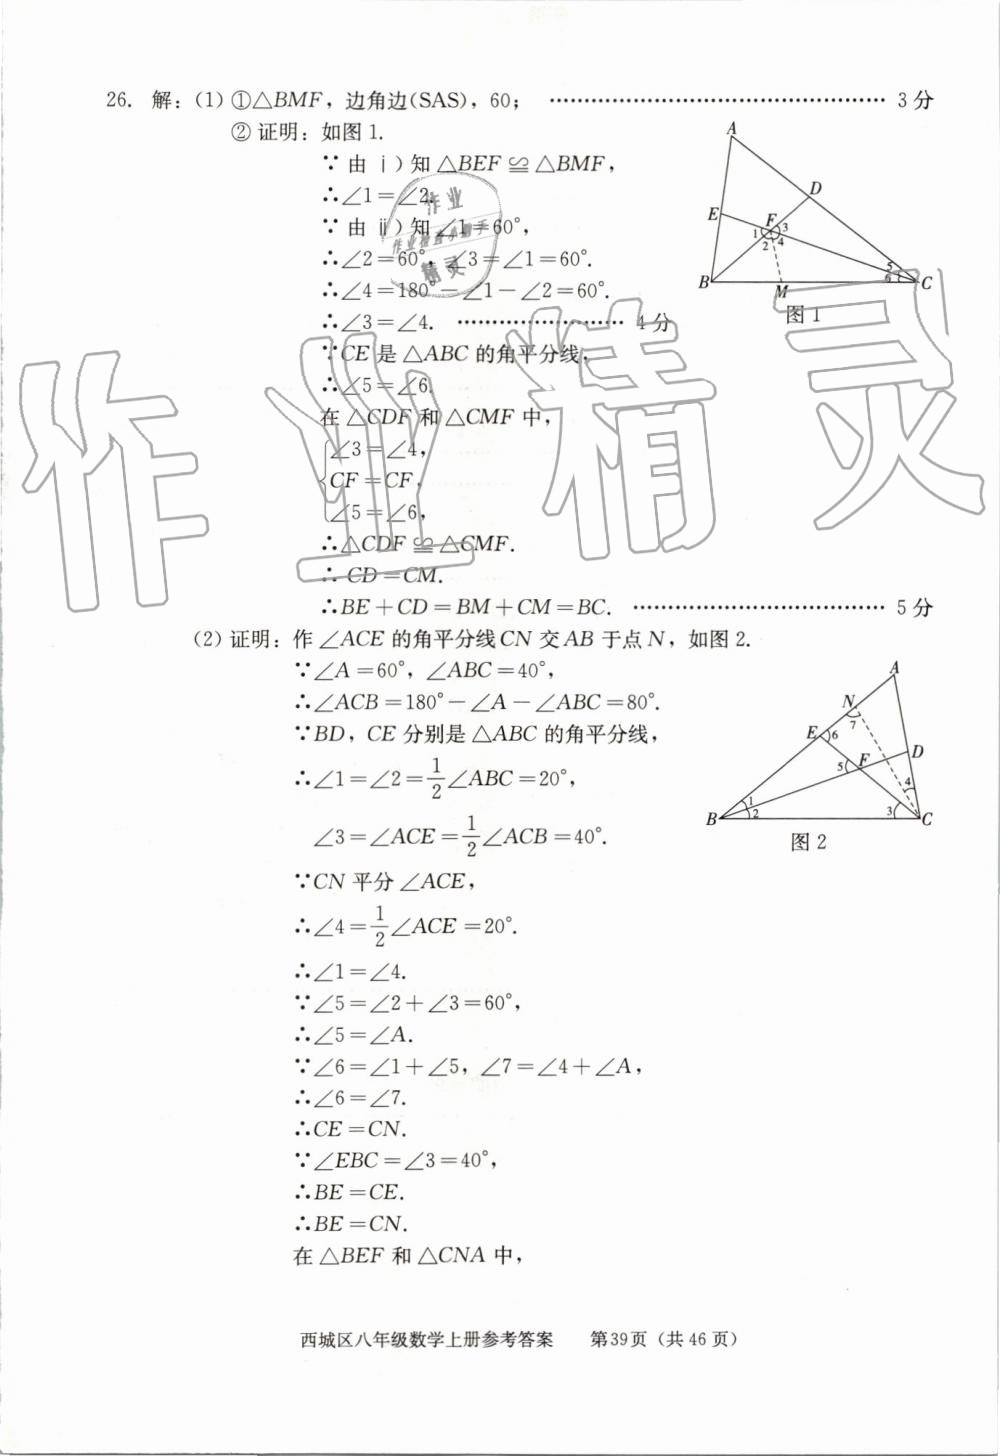 26. 解：(1) ①△BMF，边角边(SAS)，60； …… 3 分
② 证明：如图 1.
∵ 由 ⅰ) 知 △BEF ≌ △BMF，
∴∠1＝∠2.
∵ 由 ⅱ) 知 ∠1＝60°，
∴∠2＝60°，∠3＝∠1＝60°.
∴∠4＝180°－∠1－∠2＝60°.
∴∠3＝∠4. …… 4 分
∵CE 是 △ABC 的角平分线，
∴∠5＝∠6.
在 △CDF 和 △CMF 中，
∠3＝∠4，
CF＝CF，
∠5＝∠6，
∴△CDF ≌ △CMF.
∴ CD＝CM.
∴BE＋CD＝BM＋CM＝BC. …… 5 分
A
D
E
F
1
2
3
4
5
6
B
M
C
图 1
(2) 证明：作 ∠ACE 的角平分线 CN 交 AB 于点 N，如图 2.
∵∠A＝60°，∠ABC＝40°，
∴∠ACB＝180°－∠A－∠ABC＝80°.
∵BD，CE 分别是 △ABC 的角平分线，
∴∠1＝∠2＝1/2∠ABC＝20°，
∠3＝∠ACE＝1/2∠ACB＝40°.
∵CN 平分 ∠ACE，
∴∠4＝1/2∠ACE＝20°.
∴∠1＝∠4.
∵∠5＝∠2＋∠3＝60°，
∴∠5＝∠A.
∵∠6＝∠1＋∠5，∠7＝∠4＋∠A，
∴∠6＝∠7.
∴CE＝CN.
∵∠EBC＝∠3＝40°，
∴BE＝CE.
∴BE＝CN.
在 △BEF 和 △CNA 中，
A
N
7
E
6
D
5
F
4
1
2
3
B
C
图 2
西城区八年级数学上册参考答案 第39页（共 46 页）
作业精灵
作业
作业检查小助手
精灵